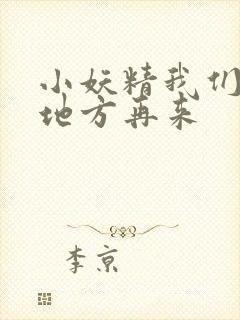 小妖精我们
地方再来
李京